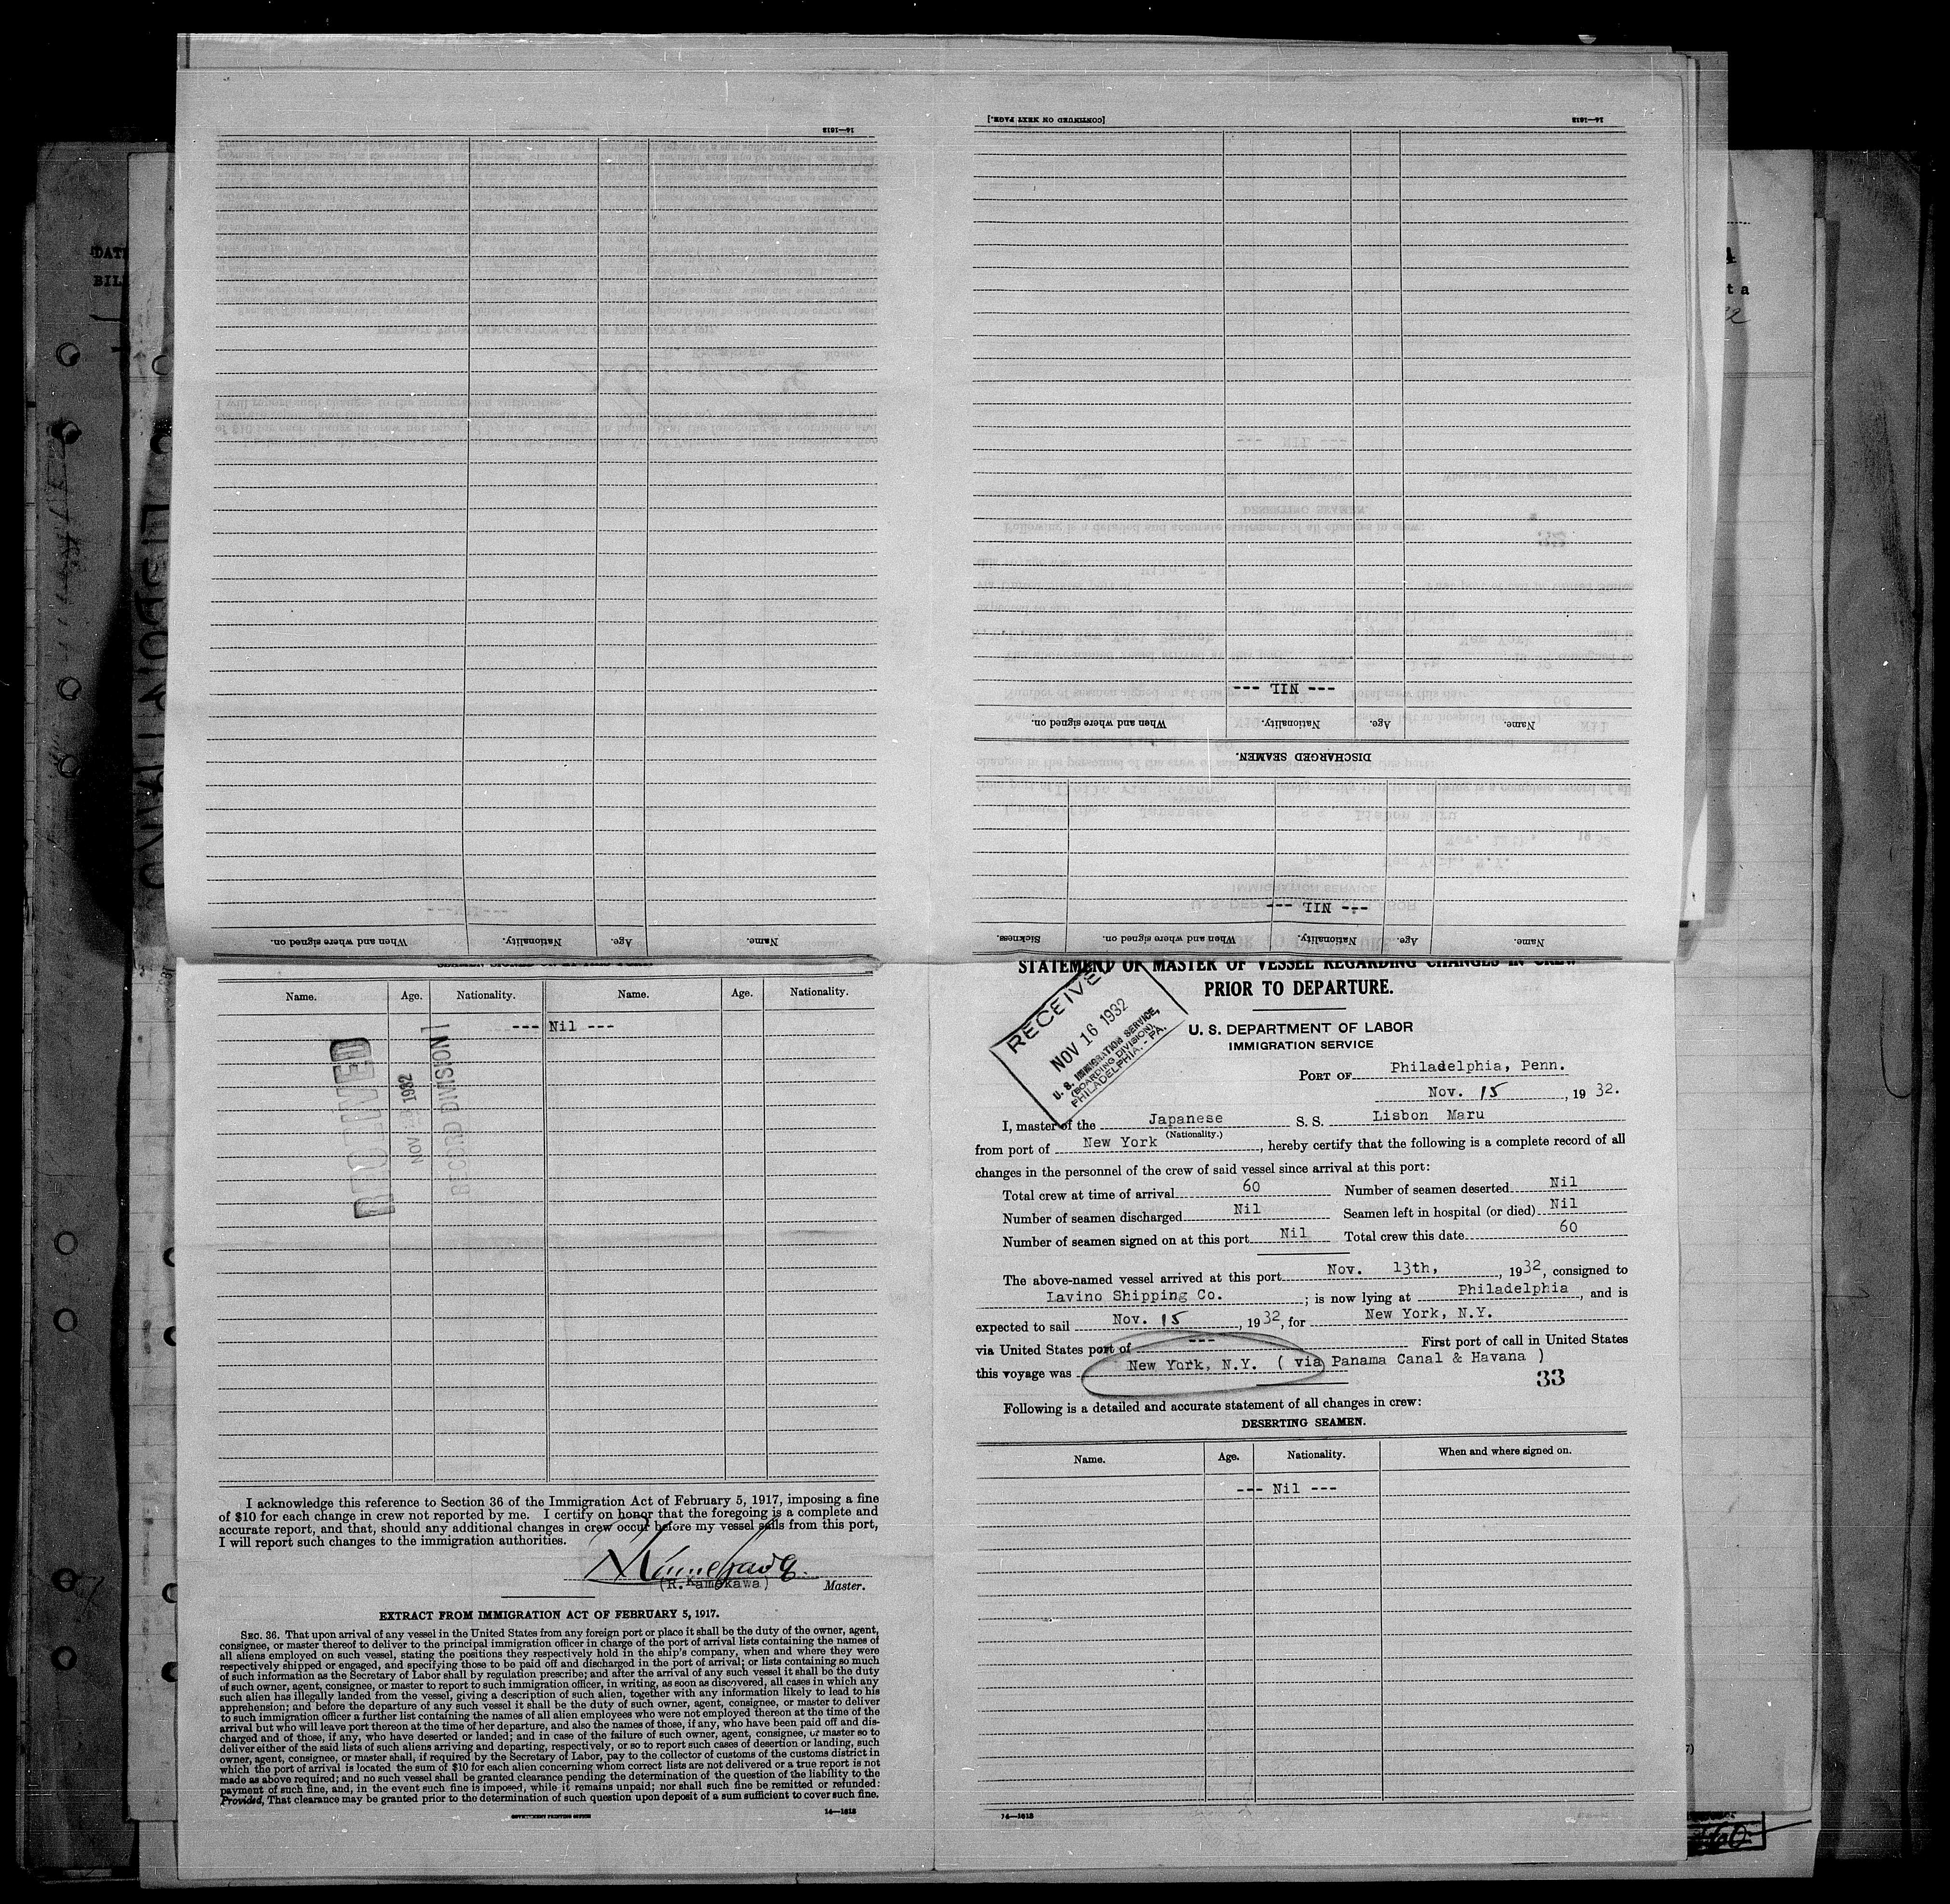 14—1613
[CONTINUED ON NEXT PAGE.]
--- NIL ---
Name.
Age.
Nationality.
When and where signed on.
DISCHARGED SEAMEN.
--- NIL ---
Name.
Age.
Nationality.
When and where signed on.
Sickness.
14—1613
Name.
Age.
Nationality.
When and where signed on.
DATE
BIL
SEAMEN SIGNED ON AT THIS PORT.
Name. Age. Nationality. Name. Age. Nationality.
--- Nil ---
RECEIVED
NOV 1932
RECORD DIVISION
I acknowledge this reference to Section 36 of the Immigration Act of February 5, 1917, imposing a fine
of $10 for each change in crew not reported by me. I certify on honor that the foregoing is a complete and
accurate report, and that, should any additional changes in crew occur before my vessel sails from this port,
I will report such changes to the immigration authorities.
(R.Kamekawa) Master.
EXTRACT FROM IMMIGRATION ACT OF FEBRUARY 5, 1917.
SEC. 36. That upon arrival of any vessel in the United States from any foreign port or place it shall be the duty of the owner, agent,
consignee, or master thereof to deliver to the principal immigration officer in charge of the port of arrival lists containing the names of
all aliens employed on such vessel, stating the positions they respectively hold in the ship's company, when and where they were
respectively shipped or engaged, and specifying those to be paid off and discharged in the port of arrival; or lists containing so much
of such information as the Secretary of Labor shall by regulation prescribe; and after the arrival of any such vessel it shall be the duty
of such owner, agent, consignee, or master to report to such immigration officer, in writing, as soon as discovered, all cases in which any
such alien has illegally landed from the vessel, giving a description of such alien, together with any information likely to lead to his
apprehension; and before the departure of any such vessel it shall be the duty of such owner, agent, consignee, or master to deliver
to such immigration officer a further list containing the names of all alien employees who were not employed thereon at the time of the
arrival but who will leave port thereon at the time of her departure, and also the names of those, if any, who have been paid off and dis-
charged and of those, if any, who have deserted or landed; and in case of the failure of such owner, agent, consignee, or master so to
deliver either of the said lists of such aliens arriving and departing, respectively, or so to report such cases of desertion or landing, such
owner, agent, consignee, or master shall, if required by the Secretary of Labor, pay to the collector of customs of the customs district in
which the port of arrival is located the sum of $10 for each alien concerning whom correct lists are not delivered or a true report is not
made as above required; and no such vessel shall be granted clearance pending the determination of the question of the liability to the
payment of such fine, and, in the event such fine is imposed, while it remains unpaid; nor shall such fine be remitted or refunded:
Provided, That clearance may be granted prior to the determination of such question upon deposit of a sum sufficient to cover such fine.
GOVERNMENT PRINTING OFFICE 14—1613
STATEMENT OF MASTER OF VESSEL REGARDING CHANGES IN CREW
PRIOR TO DEPARTURE.
RECEIVED
NOV 16 1932
U. S. IMMIGRATION SERVICE,
(BOARDING DIVISION),
PHILADELPHIA, - PA.
U. S. DEPARTMENT OF LABOR
IMMIGRATION SERVICE
PORT OF Philadelphia, Penn.
Nov. 15, 1932.
I, master of the Japanese S. S. Lisbon Maru
(Nationality.)
from port of New York, hereby certify that the following is a complete record of all
changes in the personnel of the crew of said vessel since arrival at this port:
Total crew at time of arrival 60 Number of seamen deserted Nil
Number of seamen discharged Nil Seamen left in hospital (or died) Nil
Number of seamen signed on at this port Nil Total crew this date 60
The above-named vessel arrived at this port Nov. 13th, 1932, consigned to
Lavino Shipping Co.; is now lying at Philadelphia, and is
expected to sail Nov. 15, 1932, for New York, N.Y.
via United States port of --- First port of call in United States
this voyage was New York, N.Y. ( via Panama Canal & Havana )
33
Following is a detailed and accurate statement of all changes in crew:
DESERTING SEAMEN.
Name. Age. Nationality. When and where signed on.
--- Nil ---
14—1613